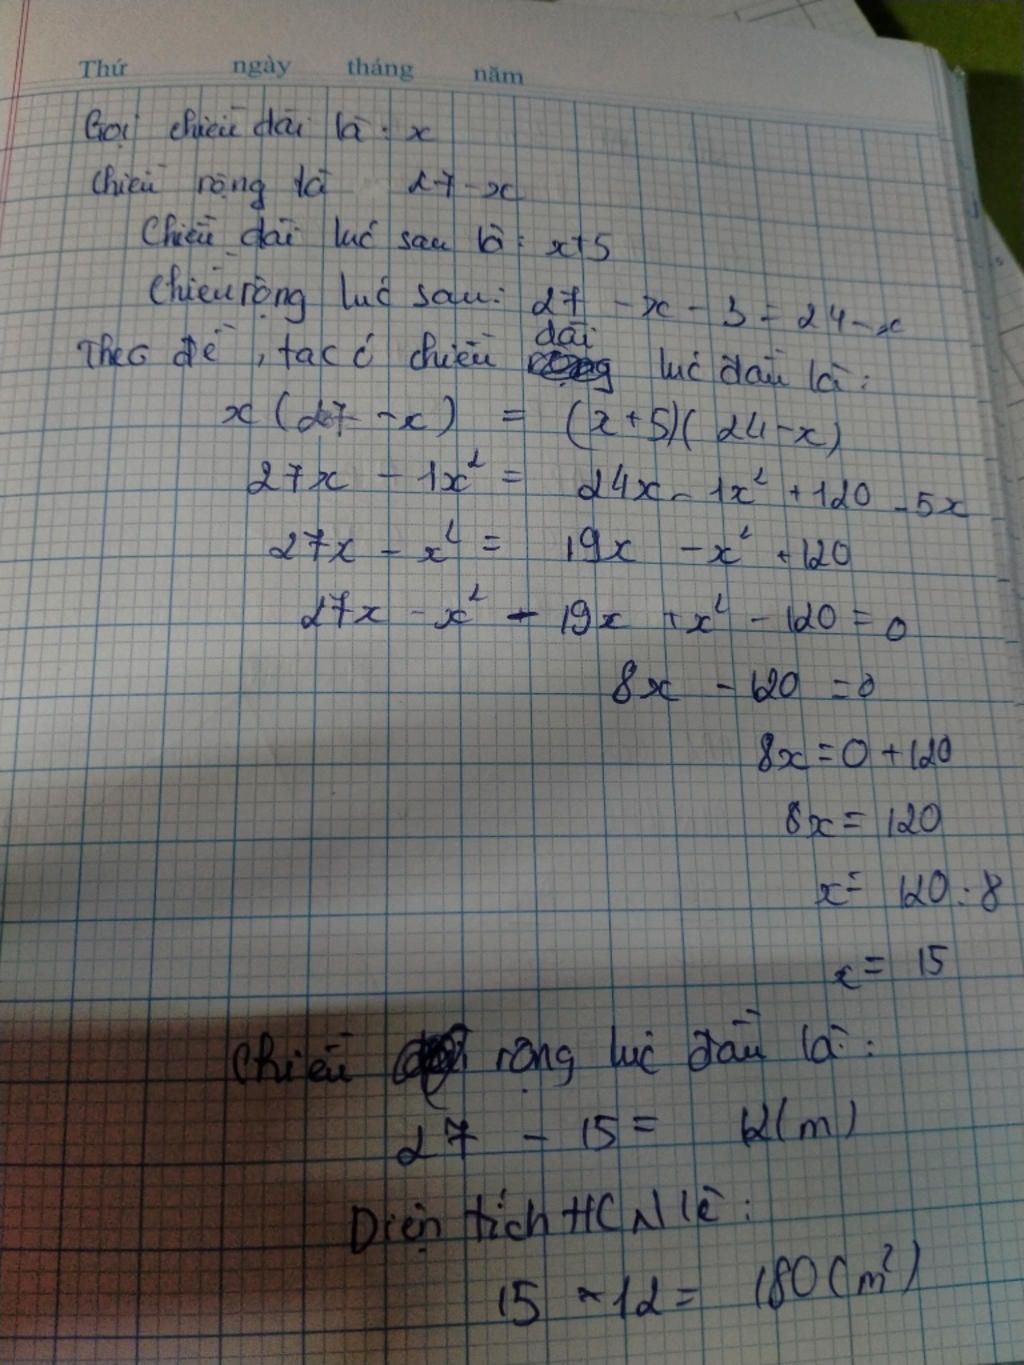 Thứ ngày tháng năm
Gọi chiều dài là : x
Chiều rộng là 27 - x
Chiều dài lúc sau là : x+5
Chiều rộng lúc sau : 27 - x - 3 = 24 - x
Theo đề , ta có chiều dài lúc đầu là :
x (27 - x) = (x+5)(24 - x)
27x - 1x² = 24x - 1x² + 120 - 5x
27x - x² = 19x - x² + 120
27x - x² - 19x + x² - 120 = 0
8x - 120 = 0
8x = 0 + 120
8x = 120
x = 120 : 8
x = 15
Chiều rộng lúc đầu là :
27 - 15 = 12 (m)
Diện tích HCN là :
15 × 12 = 180 (m²)